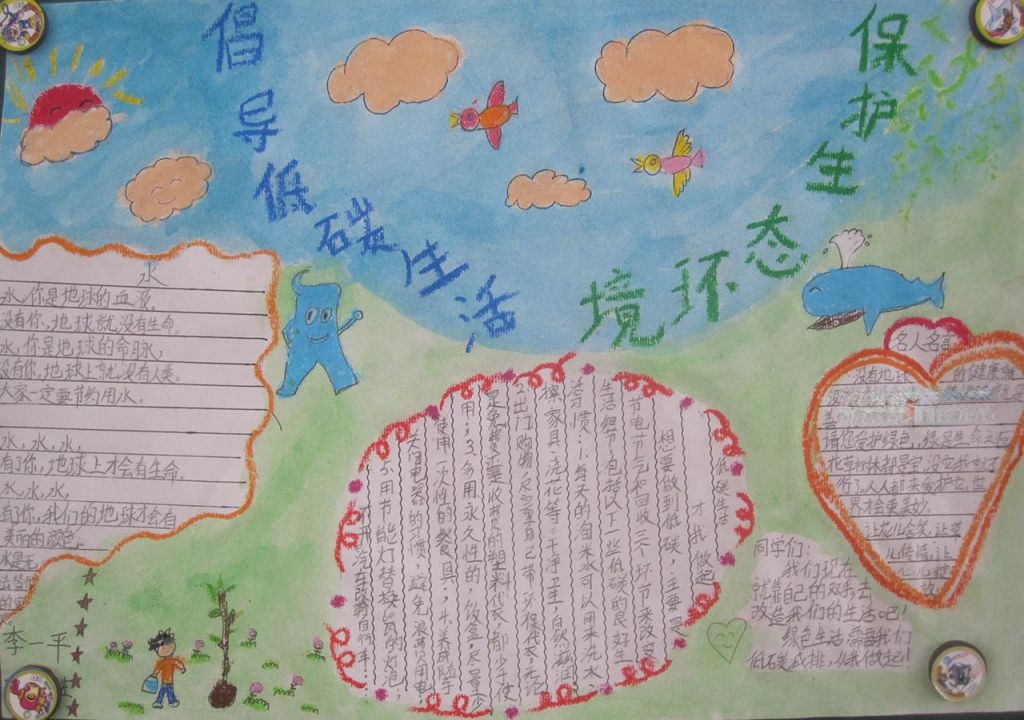 倡导低碳生活
保护生态环境
水
水,你是地球的血液,
没有你,地球就没有生命。
水,你是地球的命脉,
没有你,地球上就没有人类。
大家一定要节约用水。
水,水,水,
有了你,地球上才会有生命。
水,水,水,
有了你,我们的地球才会有
美丽的颜色。
水是无
李一平
低碳生活
从我做起
想要做到低碳,主要要
节电节气和回收三个环节来改变
生活细节,包括以下一些低碳的良好生
活习惯:1.每天的自来水可以用来洗水、
擦家具、浇花等,干净卫生,自然滋润
2.出门购物,尽量自己带环保袋,无论
是免费或要收费的塑料代袋,都少使
用;3.多用永久性的,饭盒,尽量少
使用一次性的餐具;4.养成随
关掉电器的习惯,避免浪费用电
5.用节能灯替换
名人名言
没有地球
善
请你爱护绿色,绿是生命之
花草树林都是宝,没它我
行了,人人都来爱护它,世
界才会更美妙。
让花儿含笑,让草
同学们:
我们现在
就靠自己的双手去
改造我们的生活吧!
绿色生活需要我们
低碳减排,从我做起!